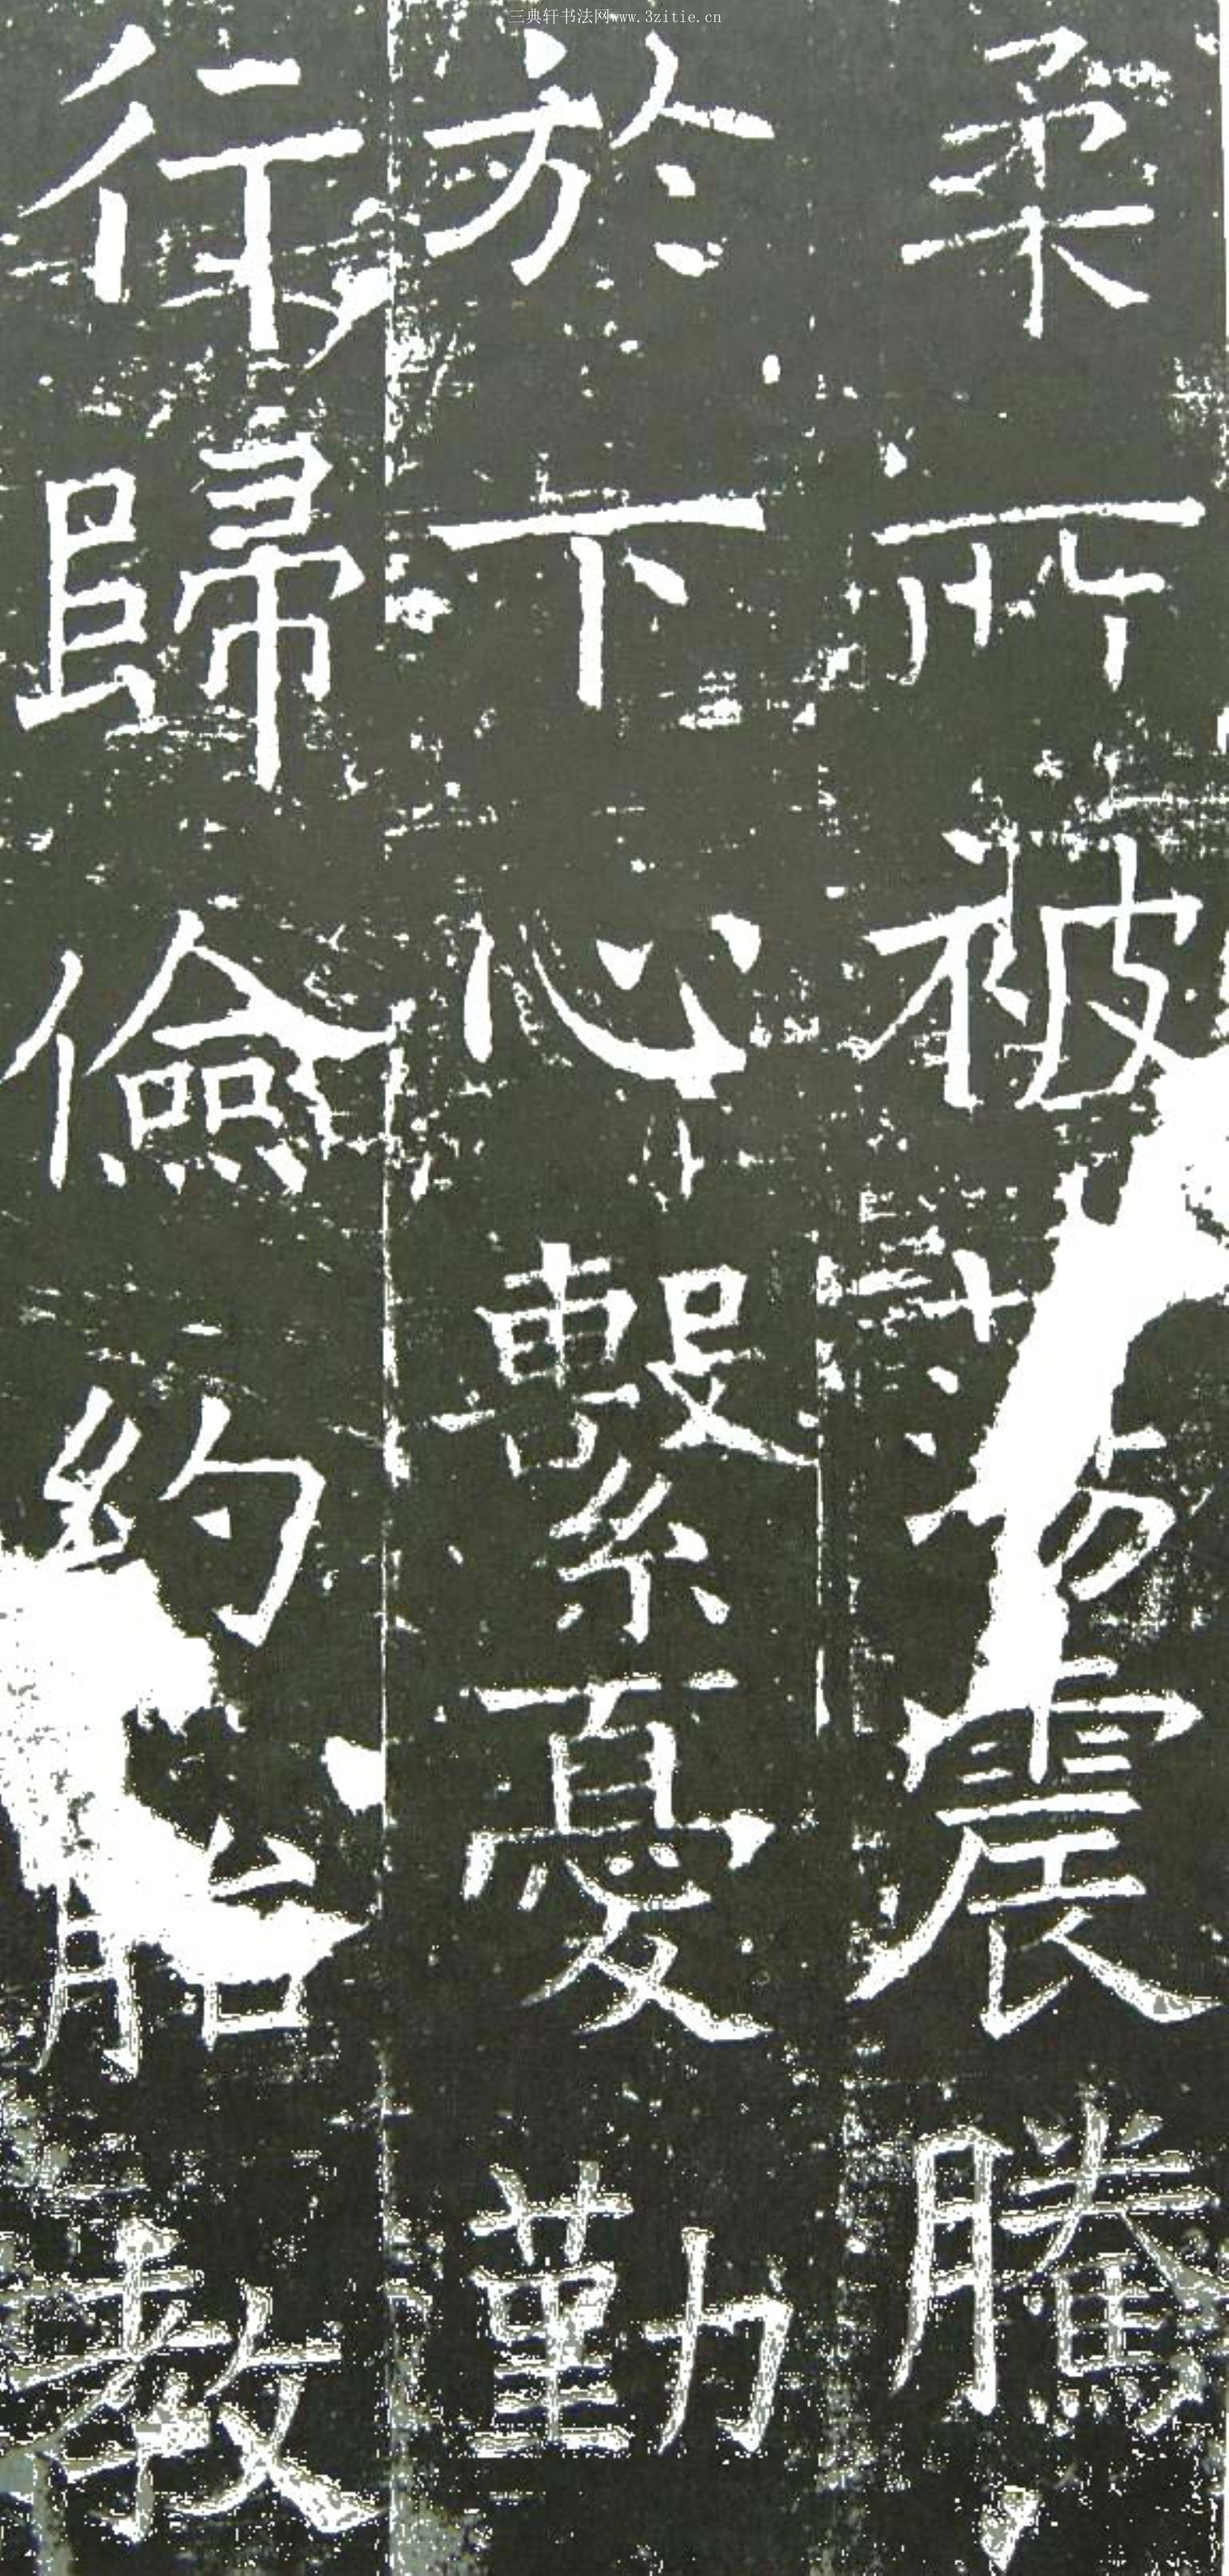 三典轩书法网www.3zitie.cn
柔所被荡震騰
於下心繫憂勤
行歸儉約貽教